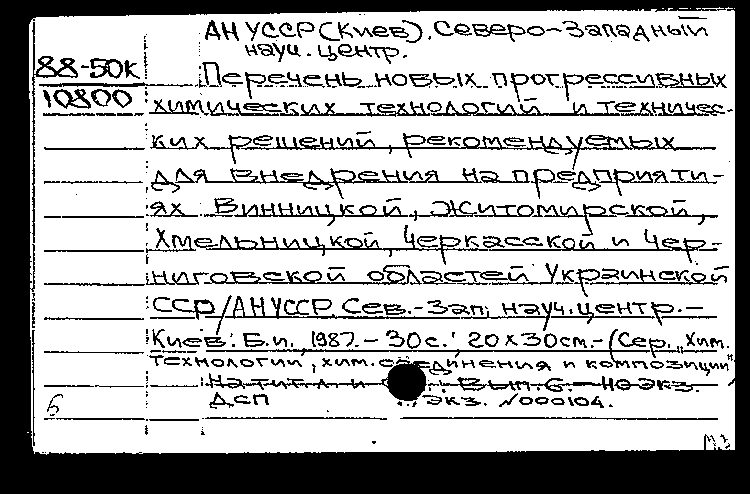 АН УССР (Киев). Северо-Западный
науч. центр.
88-50К
10800
Перечень новых прогрессивных
химических технологий и техничес-
ких решений, рекомендуемых
для внедрения на предприяти-
ях Винницкой, Житомирской,
Хмельницкой, Черкасской и Чер-
ниговской областей Украинской
ССР/АН УССР. Сев.-Зап. науч. центр.-
Киев: Б.и., 1987.- 30с.; 20х30см.- (Сер. „Хим.
технологии, хим. соединения и композиции"
На тит. л. и Вып. 6.- 110 экз.
ДСП экз. №000104.
б